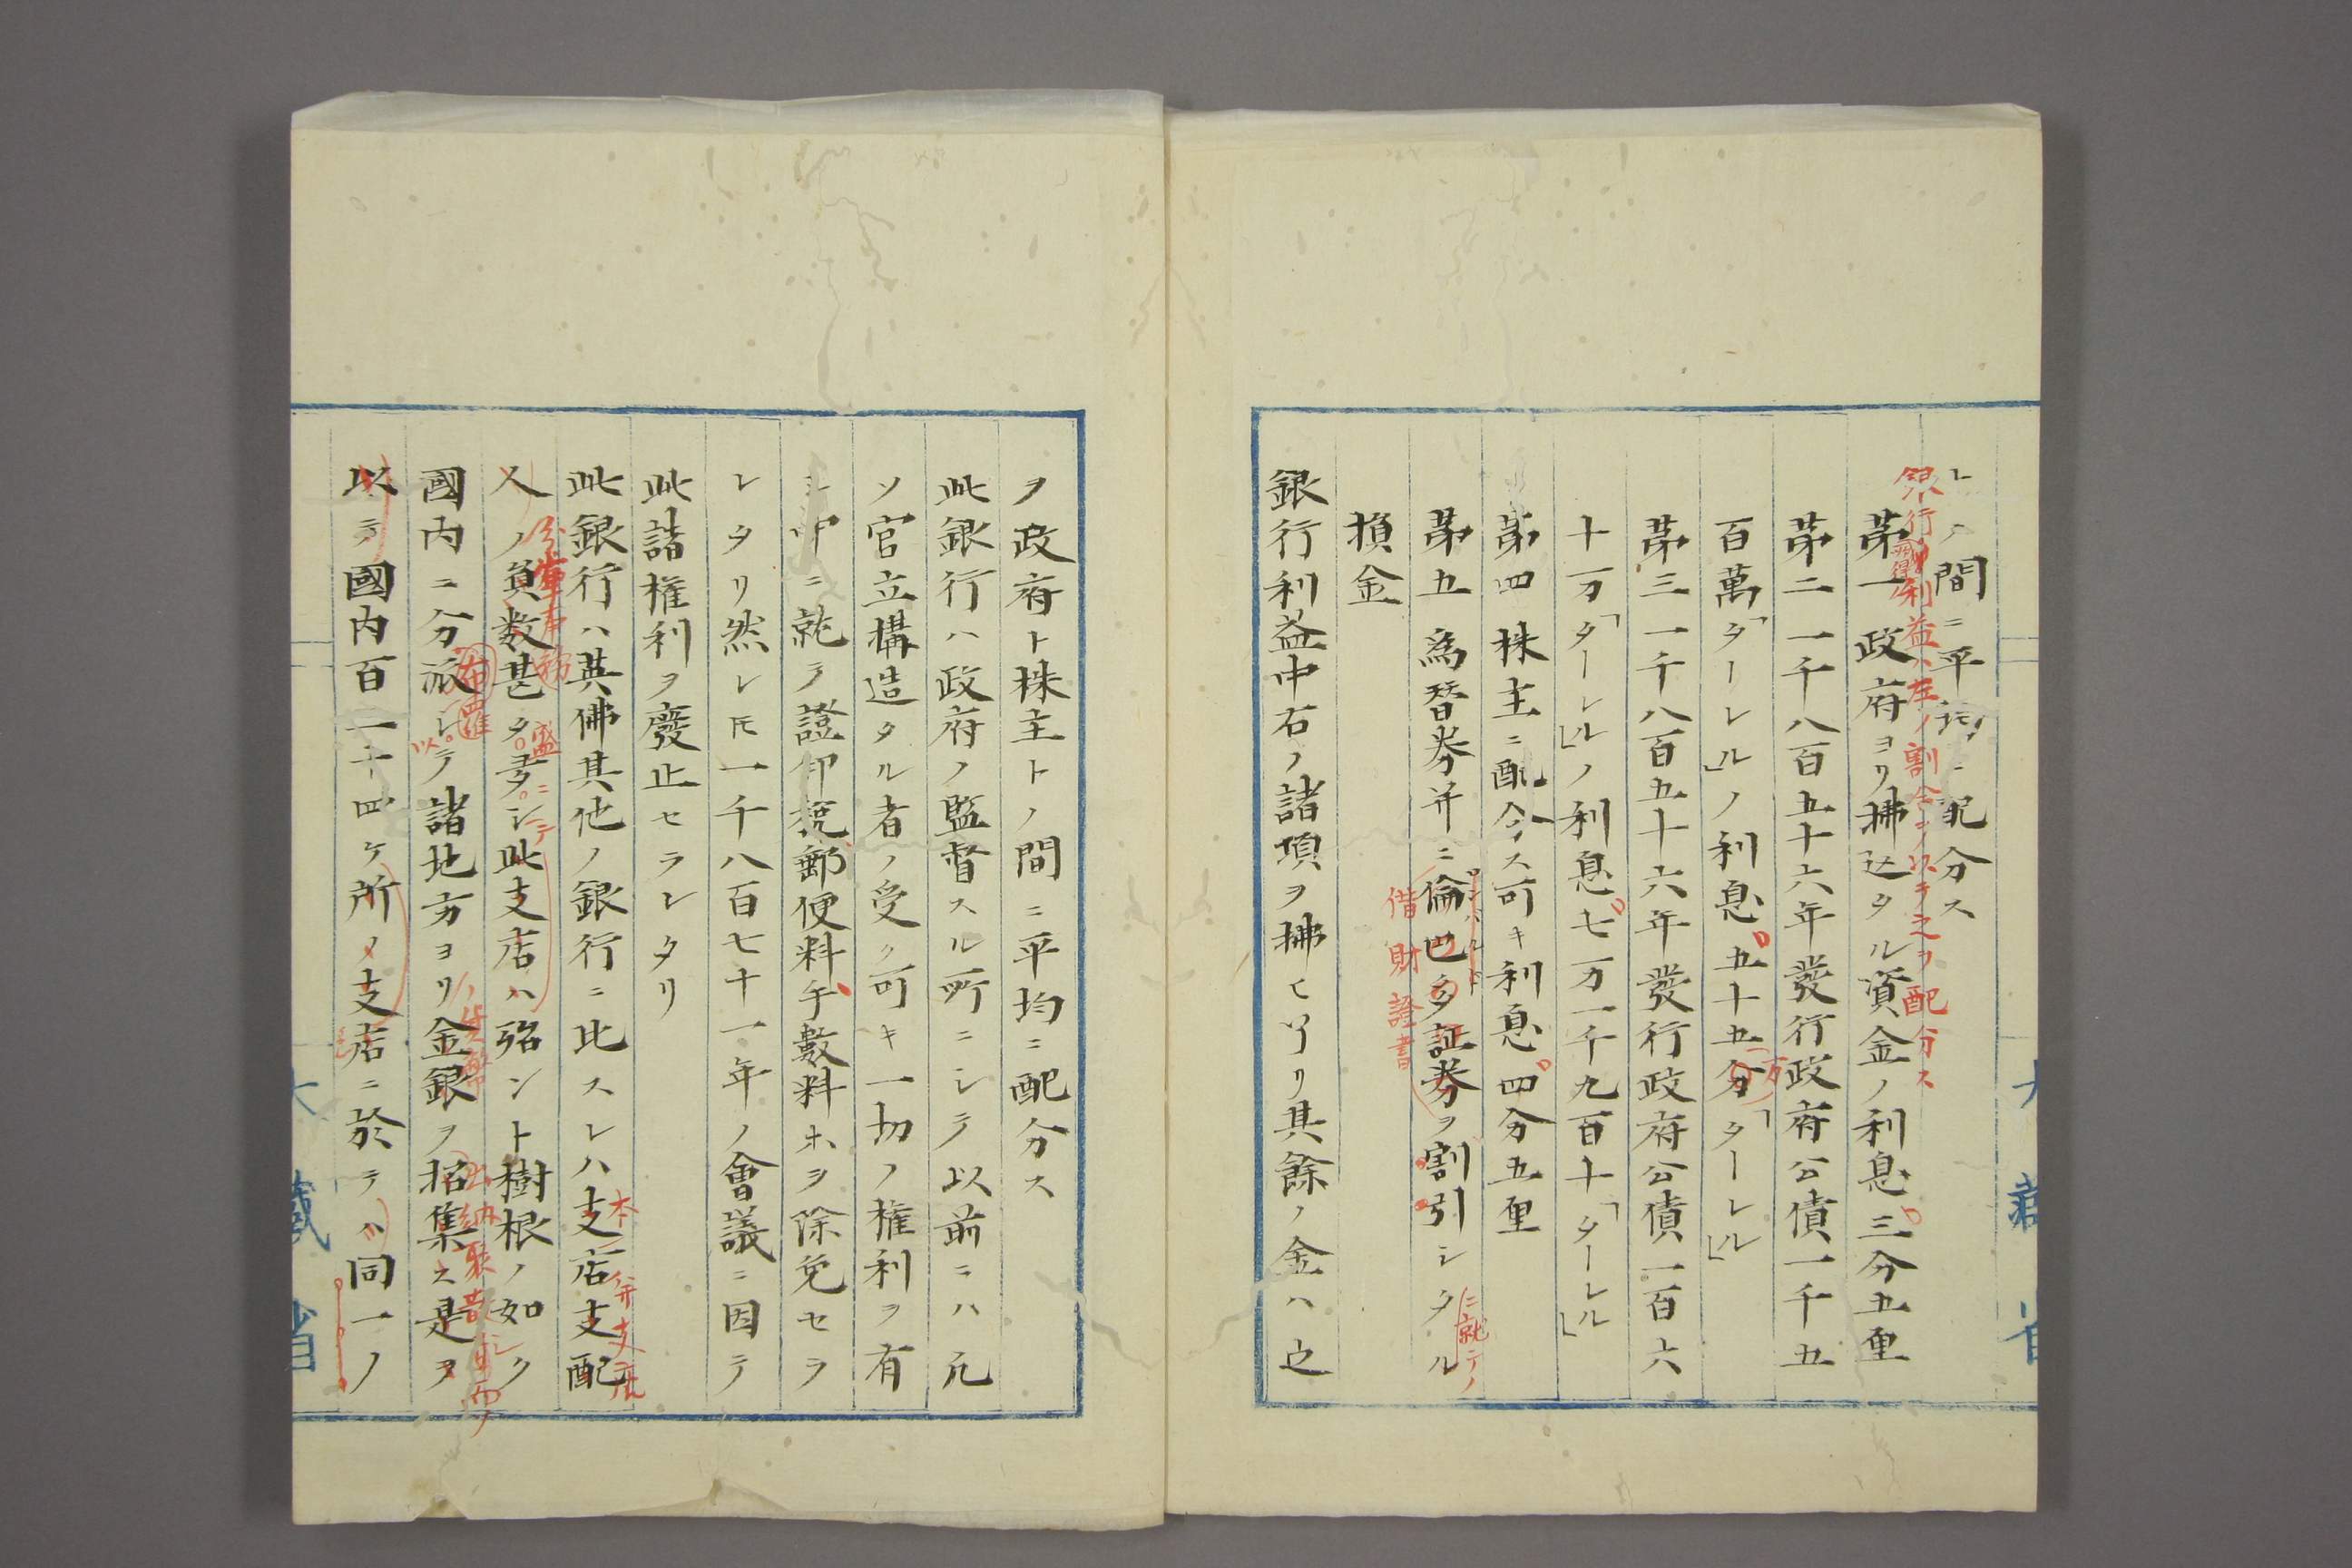 レノ間ニ平均ニ配分ス
銀行利益ハ左ノ割合ヲ以テ之ヲ配分ス
第一 政府ヨリ拂込タル資金ノ利息三分五厘
第二 一千八百五十六年發行政府公債一千五
百萬「ターレル」ノ利息五十五分「ターレル」
万
第三 一千八百五十六年發行政府公債一百六
十一万「ターレル」ノ利息七万一千九百十「ターレル」
第四 株主ニ配分ス可キ利息四分五厘
第五 為替券并ニ倫巴多証券ヲ割引シタル
ロンバルド
ニ就テノ
借財證書
損金
銀行利益中右ノ諸項ヲ拂ヒ其餘ノ金ハ之
ヲ政府ト株主トノ間ニ平均ニ配分ス
此銀行ハ政府ノ監督スル所ニシテ以前ニハ凡
ソ官立構造タル者ノ受ク可キ一切ノ権利ヲ有
シ中ニ就テ證印税郵便料手數料ホヲ除免セラ
レタリ然レ𪜈一千八百七十一年ノ會議ニ因テ
此諸権利ヲ廢止セラレタリ
此銀行ハ英佛其他ノ銀行ニ比スレハ支店支配
本
并支店
人ノ負数甚タ多シ此支店ハ殆ント樹根ノ如ク
盛ニテ
國内ニ分派シテ諸地方ヨリ金銀ヲ招集ス是ヲ
布羅
以
ノ貨幣
出納聚散
以テ國内百一十四ケ所ノ支店ニ於テハ同一ノ
大藏省
大藏省